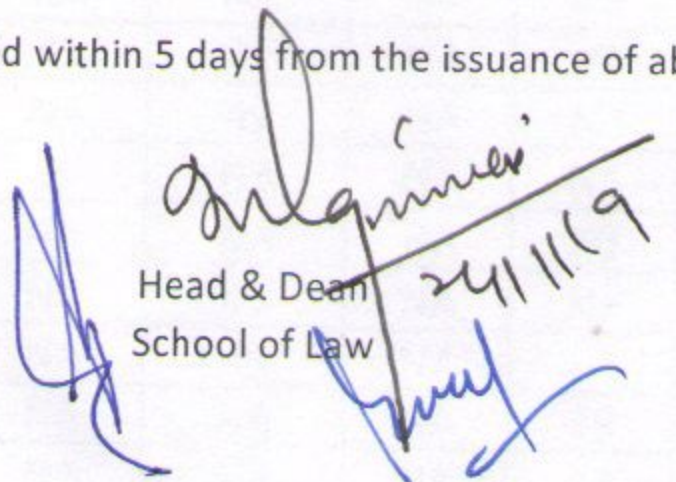 d within 5 days from the issuance of ab
24/1/19
Head & Dean
School of Law